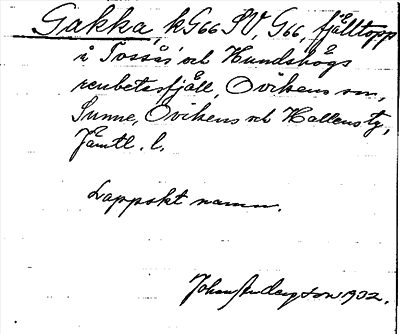 Gakka, kG66 SV, G66, fjälltopp
i Tossås och Hundshögs
renbetesfjäll, Ovikens sn,
Sunne, Ovikens och Hallens tg,
Jämtl. l.
Lappskt namn.
Johan Andersson 1932.